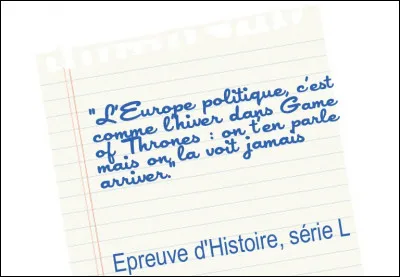 "L'Europe politique, c'est
comme l'hiver dans Game
of Thrones : on t'en parle
mais on la voit jamais
arriver."
Epreuve d'Histoire, série L